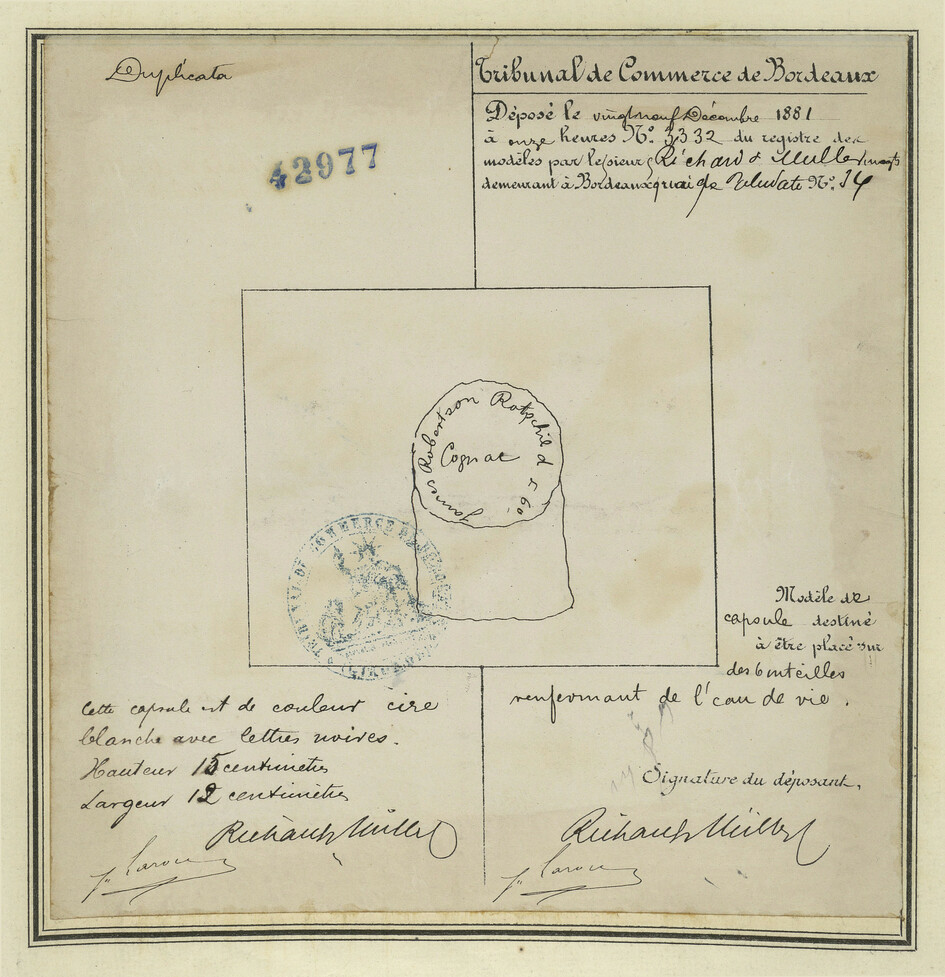 Duplicata
42977
Tribunal de Commerce de Bordeaux
Déposé le vingt neuf Décembre 1881
à onze heures N° 3332 du registre des
modèles par le sieurs Richard & Muller
demeurant à Bordeaux quai de N° 14
James Robertson Rotschild & Co
Cognac
TRIBUNAL DE COMMERCE DE BORDEAUX
Modèle de
capsule destiné
à être placé sur
des bouteilles
renfermant de l'eau de vie.
Signature du déposant,
Richard & Müller
Cette capsule est de couleur cire
blanche avec lettres noires.
Hauteur 15 centimètres
Largeur 12 centimètres
Richard & Müller